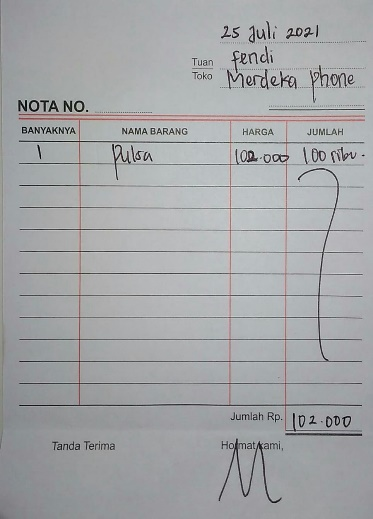 25 Juli 2021
Tuan fendi
Toko Merdeka phone
NOTA NO.
BANYAKNYA NAMA BARANG HARGA JUMLAH
1 pulsa 102.000 100 ribu.
Jumlah Rp. 102.000
Tanda Terima Hormat kami,